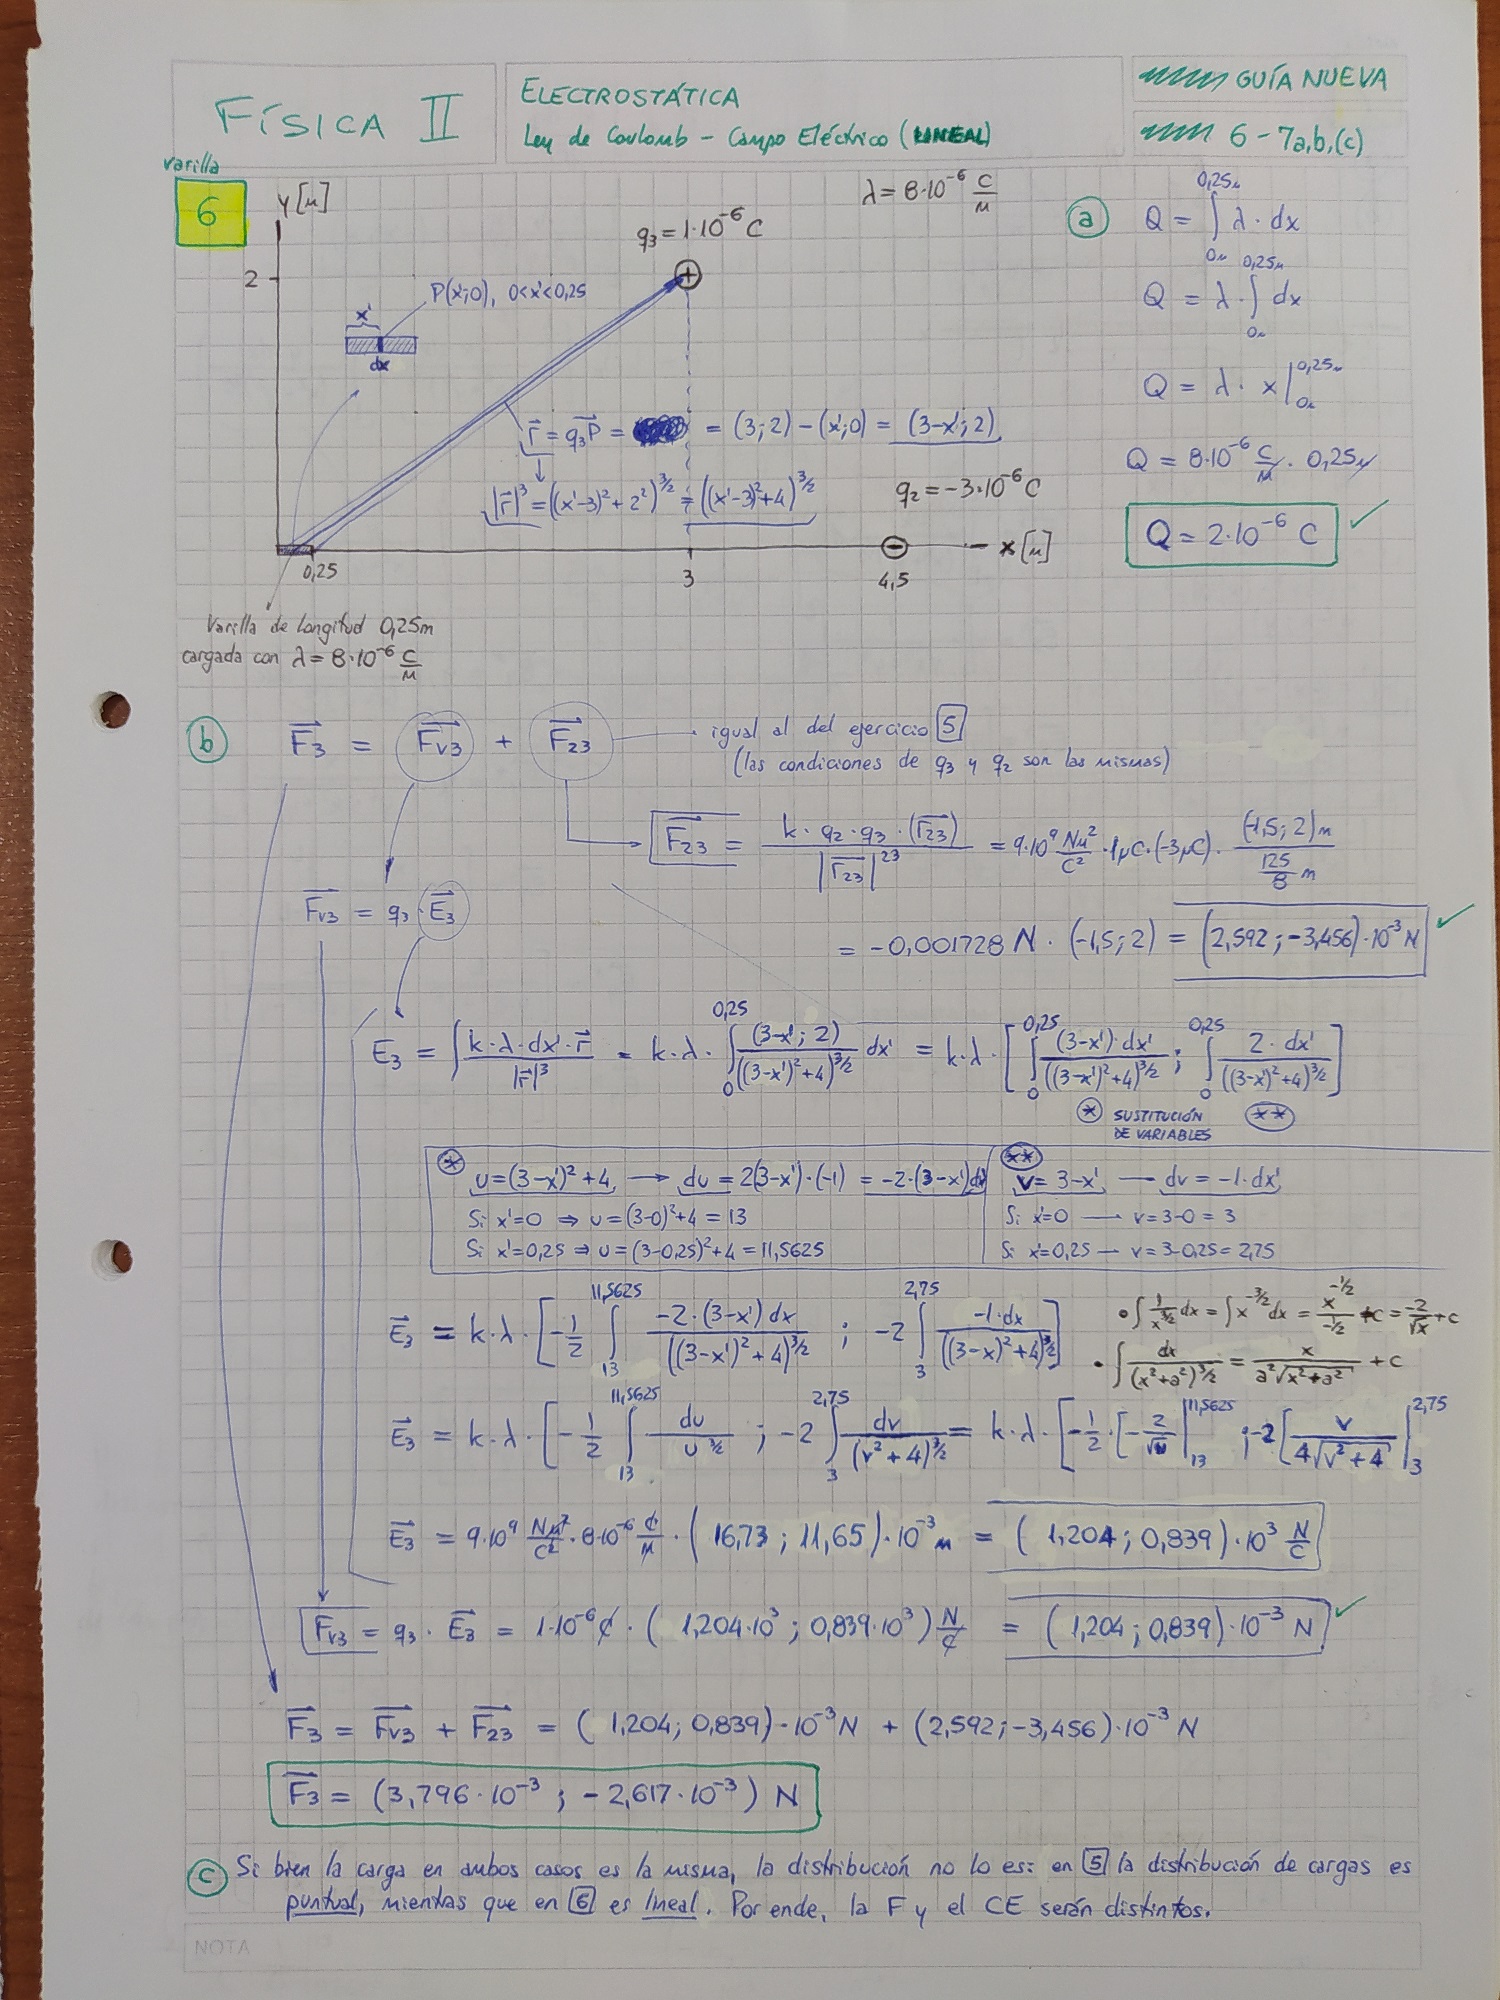 FÍSICA II
ELECTROSTÁTICA
Ley de Coulomb - Campo Eléctrico (LINEAL)
GUÍA NUEVA
6 - 7a,b,(c)
varilla
6
y [m]
λ = 8·10⁻⁶ C/m
q₃ = 1·10⁻⁶ C
2
P(x';0), 0<x'<0,25
x'
dx
r⃗ = q₃P⃗ = = (3;2) - (x';0) = (3-x';2)
|r⃗|³ = ((x'-3)² + 2²)^3/2 = ((x'-3)²+4)^3/2
q₂ = -3·10⁻⁶ C
0,25 3 4,5 x [m]
Varilla de longitud 0,25m
cargada con λ = 8·10⁻⁶ C/m
a Q = ∫_0m^0,25m λ · dx
Q = λ · ∫_0m^0,25m dx
Q = λ · x |_0m^0,25m
Q = 8·10⁻⁶ C/m · 0,25m
Q = 2·10⁻⁶ C ✓
b F₃⃗ = Fv₃⃗ + F₂₃⃗
igual al del ejercicio 5
(las condiciones de q₃ y q₂ son las mismas)
F₂₃⃗ = k · q₂ · q₃ · (r₂₃⃗) / |r₂₃⃗|²³ = 9·10⁹ Nm²/C² · 1μC · (-3μC) · (-1,5; 2)m / 125/8 m
Fv₃⃗ = q₃ · E₃⃗
= -0,001728 N · (-1,5; 2) = (2,592 ; -3,456)·10⁻³ N ✓
E₃ = ∫ k·λ·dx'·r⃗ / |r⃗|³ = k·λ· ∫_0^0,25 (3-x'; 2) / ((3-x')²+4)^3/2 dx' = k·λ· [ ∫_0^0,25 (3-x')·dx' / ((3-x')²+4)^3/2 ; ∫_0^0,25 2·dx' / ((3-x')²+4)^3/2 ]
* SUSTITUCIÓN **
DE VARIABLES
* u = (3-x')²+4 → du = 2(3-x')·(-1) = -2·(3-x')dx'
Si x'=0 ⇒ u = (3-0)²+4 = 13
Si x'=0,25 ⇒ u = (3-0,25)²+4 = 11,5625
** v = 3-x' — dv = -1·dx'
Si x'=0 — v = 3-0 = 3
Si x'=0,25 — v = 3-0,25 = 2,75
E₃⃗ = k·λ· [ -1/2 ∫_13^11,5625 -2·(3-x')dx / ((3-x')²+4)^3/2 ; -2 ∫_3^2,75 -1·dx / ((3-x)²+4)^3/2 ]
• ∫ 1/x^3/2 dx = ∫ x^-3/2 dx = x^-1/2 / -1/2 + c = -2/√x + c
• ∫ dx / (x²+a²)^3/2 = x / a²√(x²+a²) + c
E₃⃗ = k·λ· [ -1/2 ∫_13^11,5625 du / u^3/2 ; -2 ∫_3^2,75 dv / (v²+4)^3/2 = k·λ· [ -1/2 · [ -2/√u |_13^11,5625 ; -2 [ v / 4√(v²+4) |_3^2,75
E₃⃗ = 9·10⁹ Nm²/C² · 8·10⁻⁶ C/m · ( 16,73 ; 11,65)·10⁻³ m = ( 1,204 ; 0,839)·10³ N/C
Fv₃⃗ = q₃ · E₃⃗ = 1·10⁻⁶ C · ( 1,204·10³ ; 0,839·10³ ) N/C = ( 1,204 ; 0,839)·10⁻³ N ✓
F₃⃗ = Fv₃⃗ + F₂₃⃗ = ( 1,204; 0,839)·10⁻³ N + (2,592; -3,456)·10⁻³ N
F₃⃗ = (3,796·10⁻³ ; -2,617·10⁻³) N
c Si bien la carga en ambos casos es la misma, la distribución no lo es: en 5 la distribución de cargas es
puntual, mientras que en 6 es lineal. Por ende, la F y el CE serán distintos.
NOTA